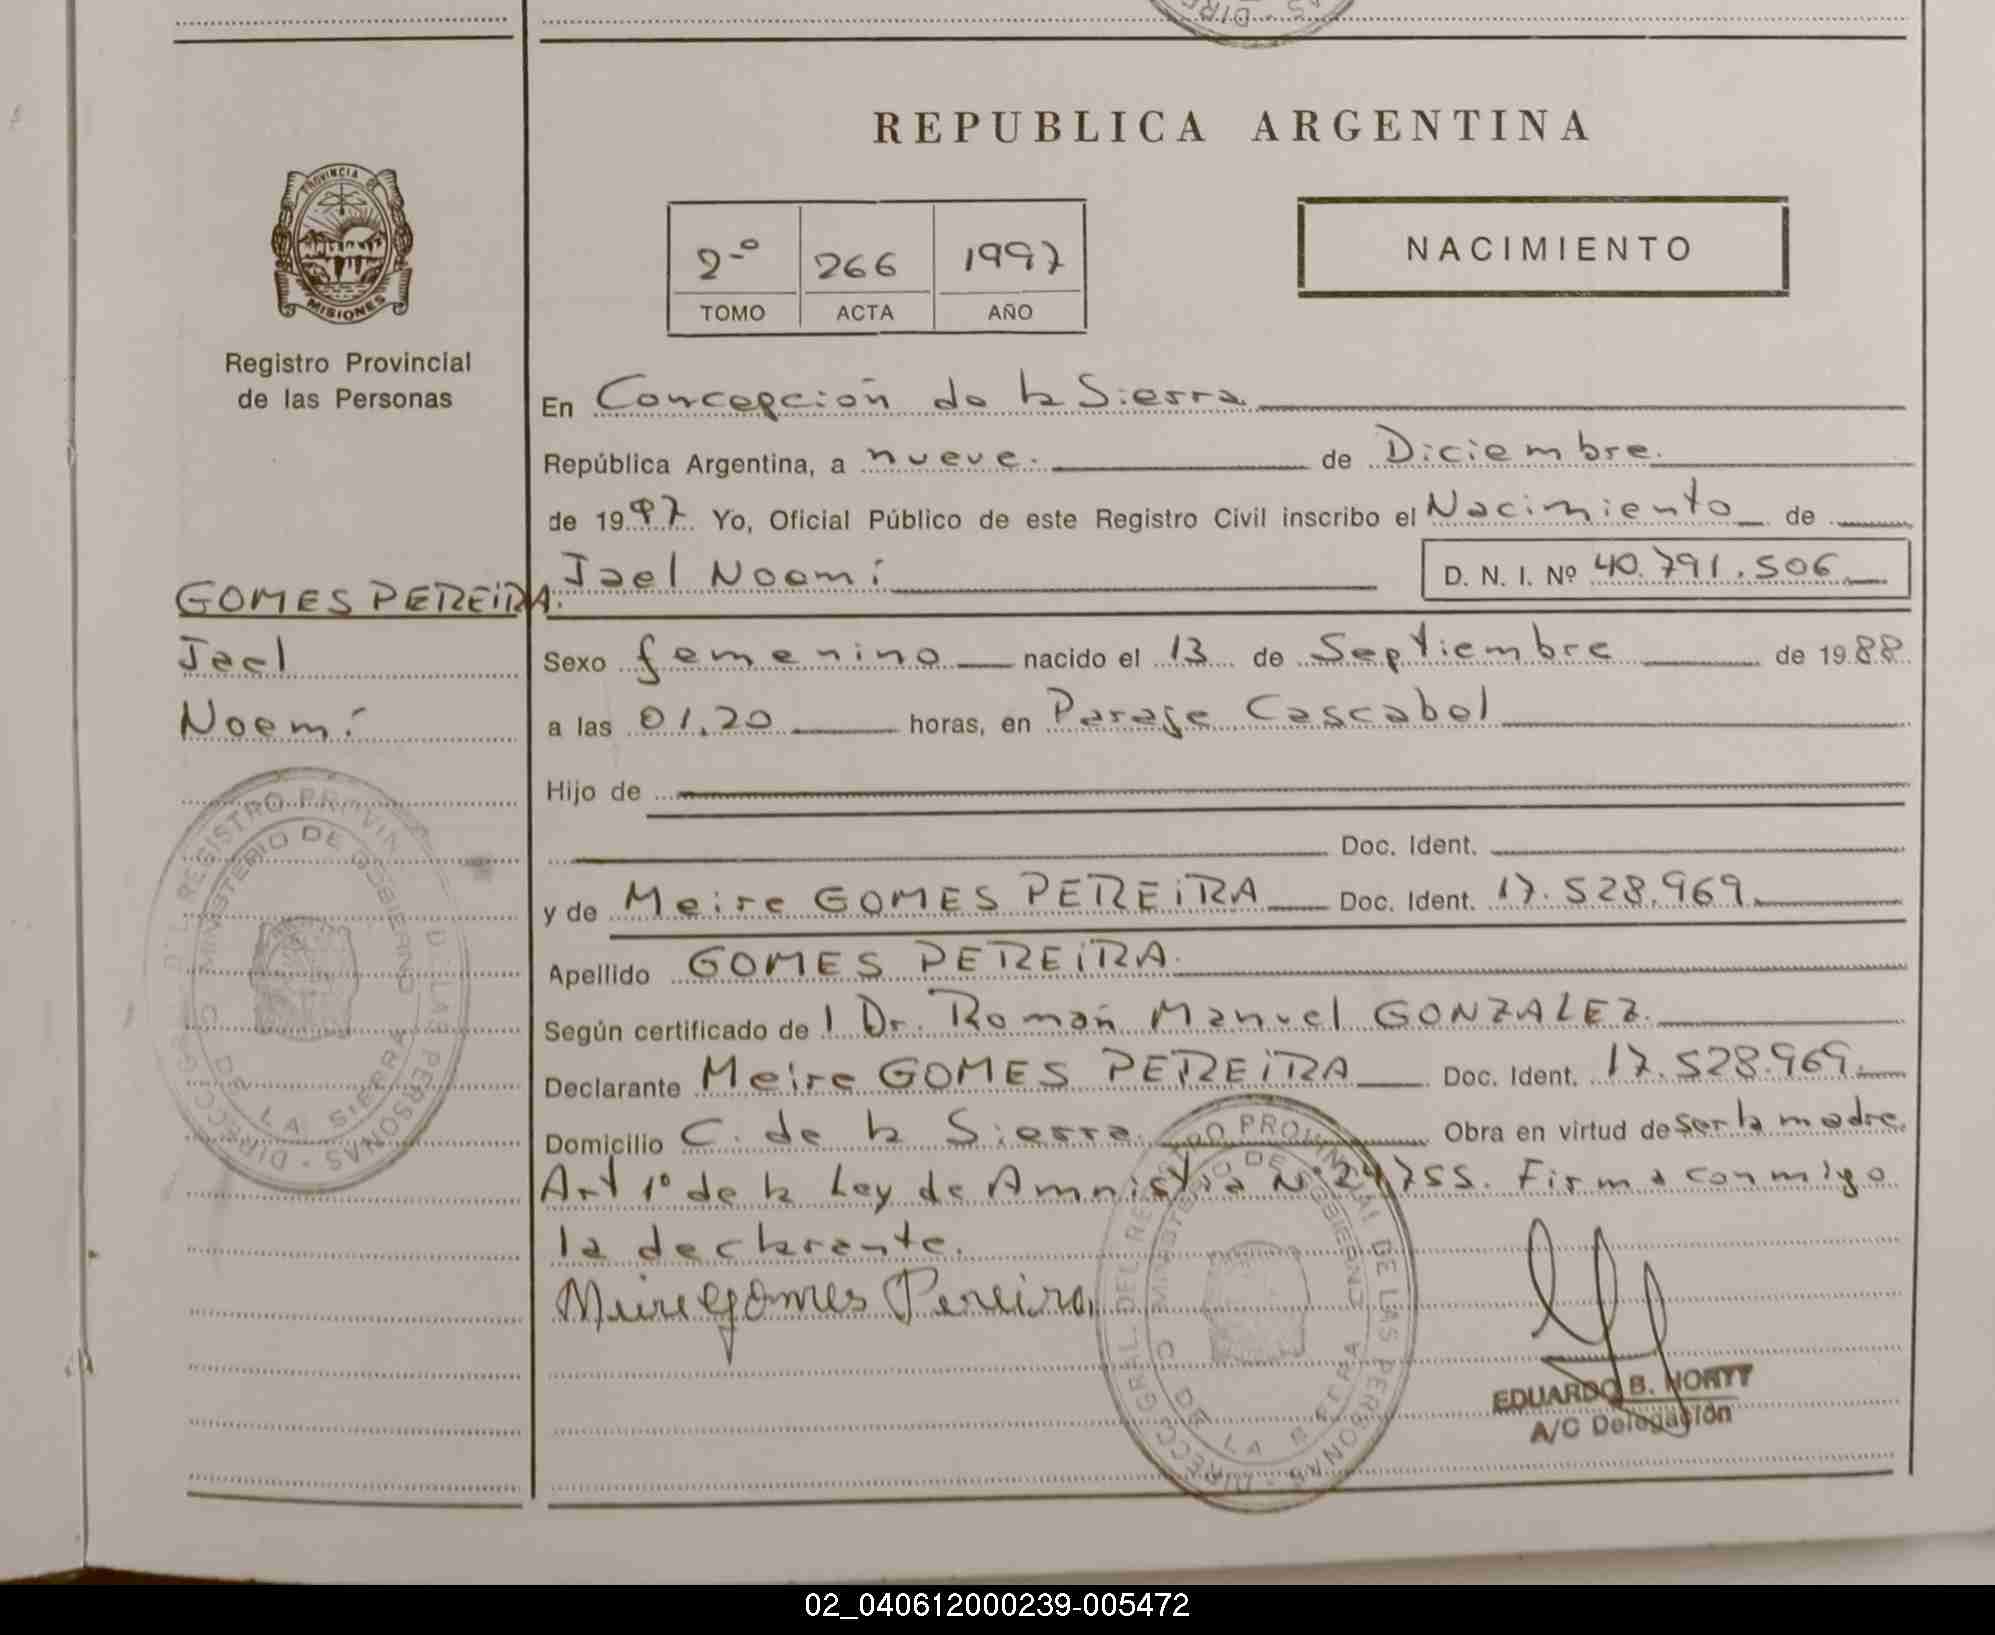 REPUBLICA ARGENTINA
PROVINCIA DE
MISIONES
2º 266 1997
TOMO ACTA AÑO
NACIMIENTO
Registro Provincial
de las Personas
En Concepción de la Sierra
República Argentina, a nueve. de Diciembre.
de 1997. Yo, Oficial Público de este Registro Civil inscribo el Nacimiento de
Jael Noemí D. N. I. Nº 40.791.506
GOMES PEREIRA.
Jael
Noemí
Sexo femenino nacido el 13 de Septiembre de 1988
a las 01,20 horas, en Paraje Cascabel
Hijo de
Doc. Ident.
y de Meire GOMES PEREIRA Doc. Ident. 17.528.969.
Apellido GOMES PEREIRA.
Según certificado de l Dr. Román Manuel GONZALEZ.
Declarante Meire GOMES PEREIRA Doc. Ident. 17.528.969.
Domicilio C. de la Sierra Obra en virtud de ser la madre.
Art 1º de la Ley de Amnistia Nº 24755. Firma conmigo
la declarante.
Meire Gomes Pereira
EDUARDO B.
A/C Delegación
DIRECC. GRAL. DEL REGISTRO PROVINCIAL DE LAS PERSONAS
MINISTERIO DE GOBIERNO
DE LA SIERRA
DIRECC. GRAL. DEL REGISTRO PROVINCIAL DE LAS PERSONAS
MINISTERIO DE GOBIERNO
DE LA SIERRA
02_040612000239-005472